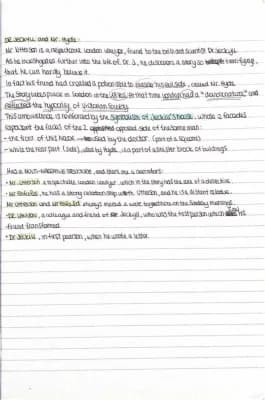 DR JECKYLL and MR. Hyde:
Mr Utterson is a respectable London lawyer, found to the brilliant scientist Dr Jeckyll.
As he investigates further into the life of Dr. J, he discovers a story so terrifying,
that he can hardly believe it.
In fact his friend had created a potion able to his evil side, called Mr. Hyde.
The story takes place in London in the at that time London had a "double nature" and
reflected the hypocrisy of Victorian Society.
This ambivalence is reinforced by the symbolism of Jeckyll's house, whose 2 facades
represent the faces of the 2 opposed side of the same man:
- the front of this house used by the doctor. (part of a square)
- while the rear part (side), used by Hyde, is part of a sinister block of buildings
Has a multi-narrative structure, and there are 4 narrators:
• Mr Utterson a respectable London lawyer, which in the story has the role of a detective
• Mr Enfield, he has a strong relationship with Utterson, and he is a distant relative.
Mr Utterson and Mr Enfield always married a walk together on the Sunday morning.
• Dr Lanyon, a colleague and friend of Dr Jeckyll, who was the first person which his
friend transformed
• Dr Jeckyll, in first person, when he wrote a letter.